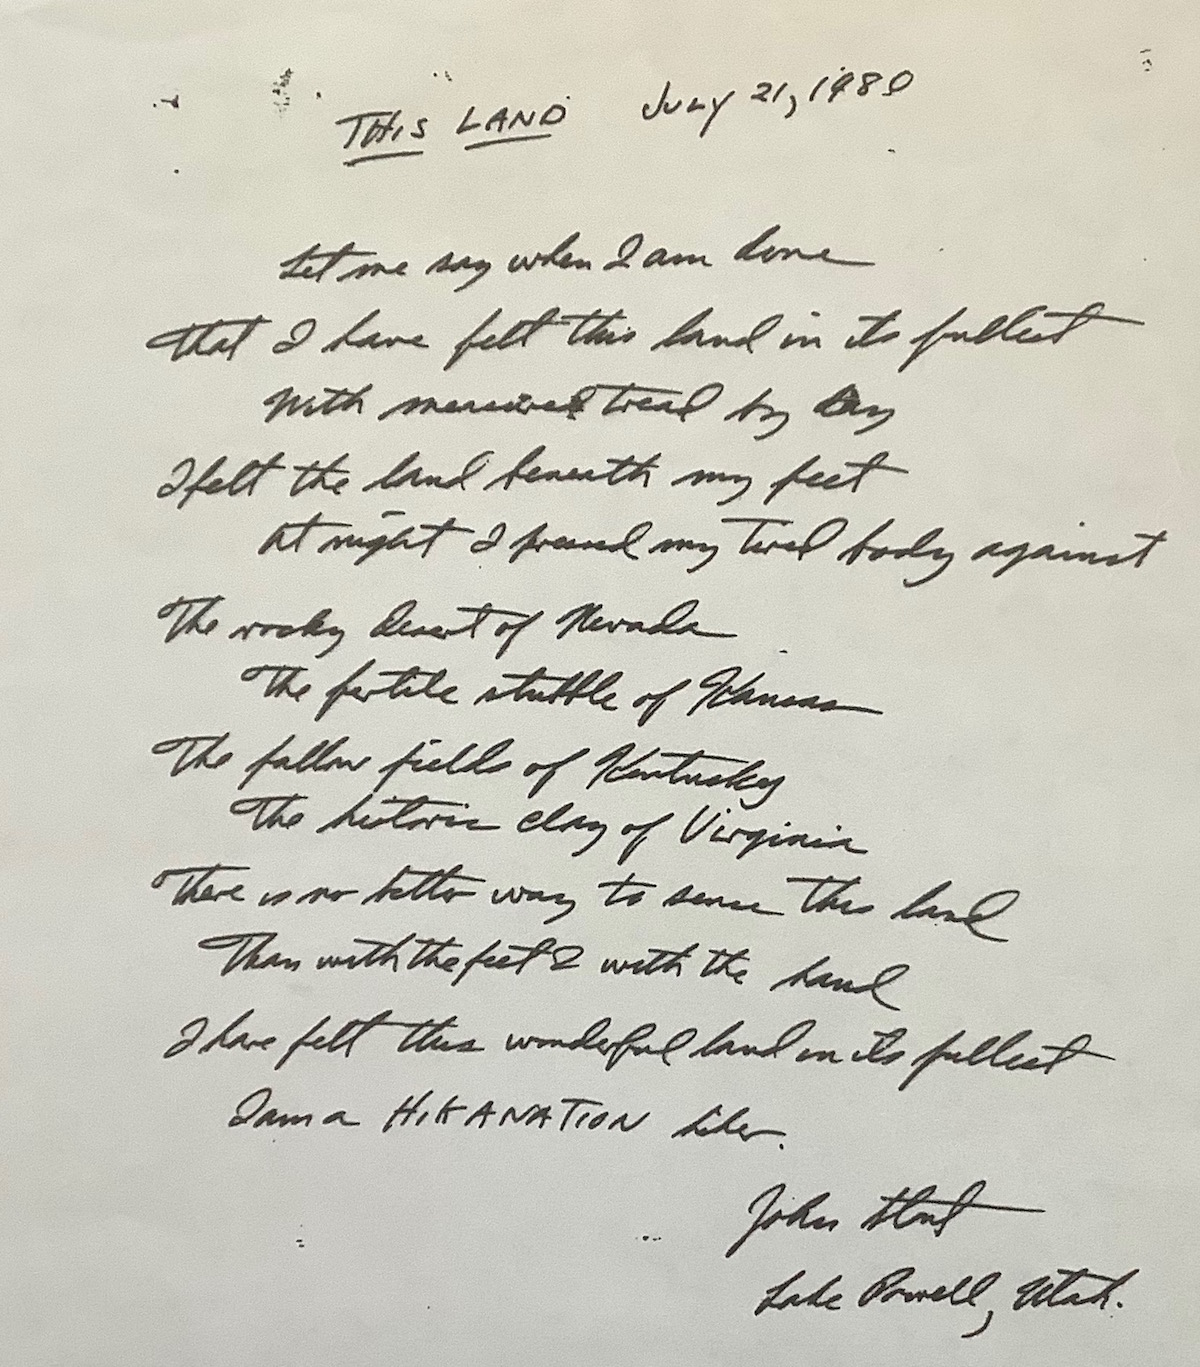 THIS LAND July 21, 1980
Let me say when I am done
That I have felt this land in its fullest
With measured tread by day
I felt the land beneath my feet
At night I pressed my tired body against
The rocky desert of Nevada
The fertile stubble of Kansas
The fallow fields of Kentucky
The historic clay of Virginia
There is no better way to sense this land
Than with the feet & with the hand
I have felt this wonderful land in its fullest
I am a HIKANATION hiker.
John
Lake Powell, Utah.